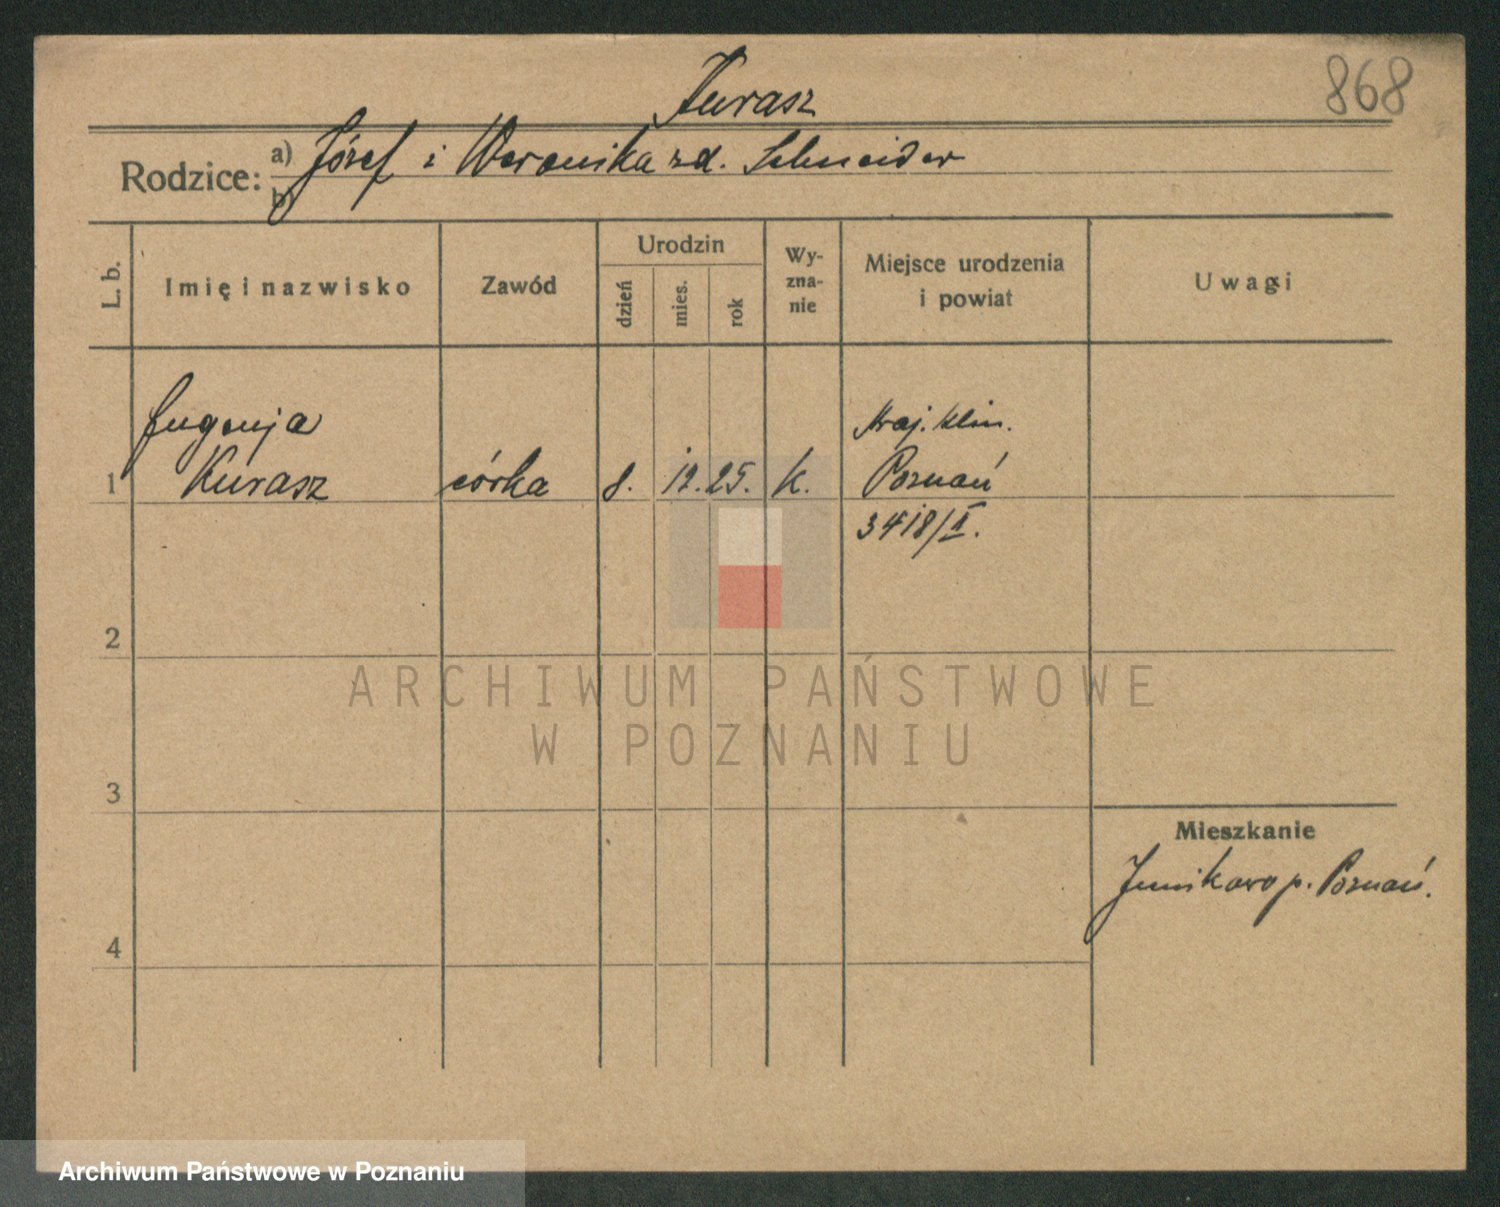 868
Kurasz
Rodzice: a) Józef i Weronika zd. Schneider
b)
L. b.
Imię i nazwisko
Zawód
Urodzin
dzień
mies.
rok
Wy-
zna-
nie
Miejsce urodzenia
i powiat
Uwagi
Eugenja
Kraj. klin.
1 Kurasz córka 8. 12. 25. k. Poznań
3418/II.
2
ARCHIWUM PAŃSTWOWE
W POZNANIU
3
Mieszkanie
Junikowo p. Poznań.
4
Archiwum Państwowe w Poznaniu